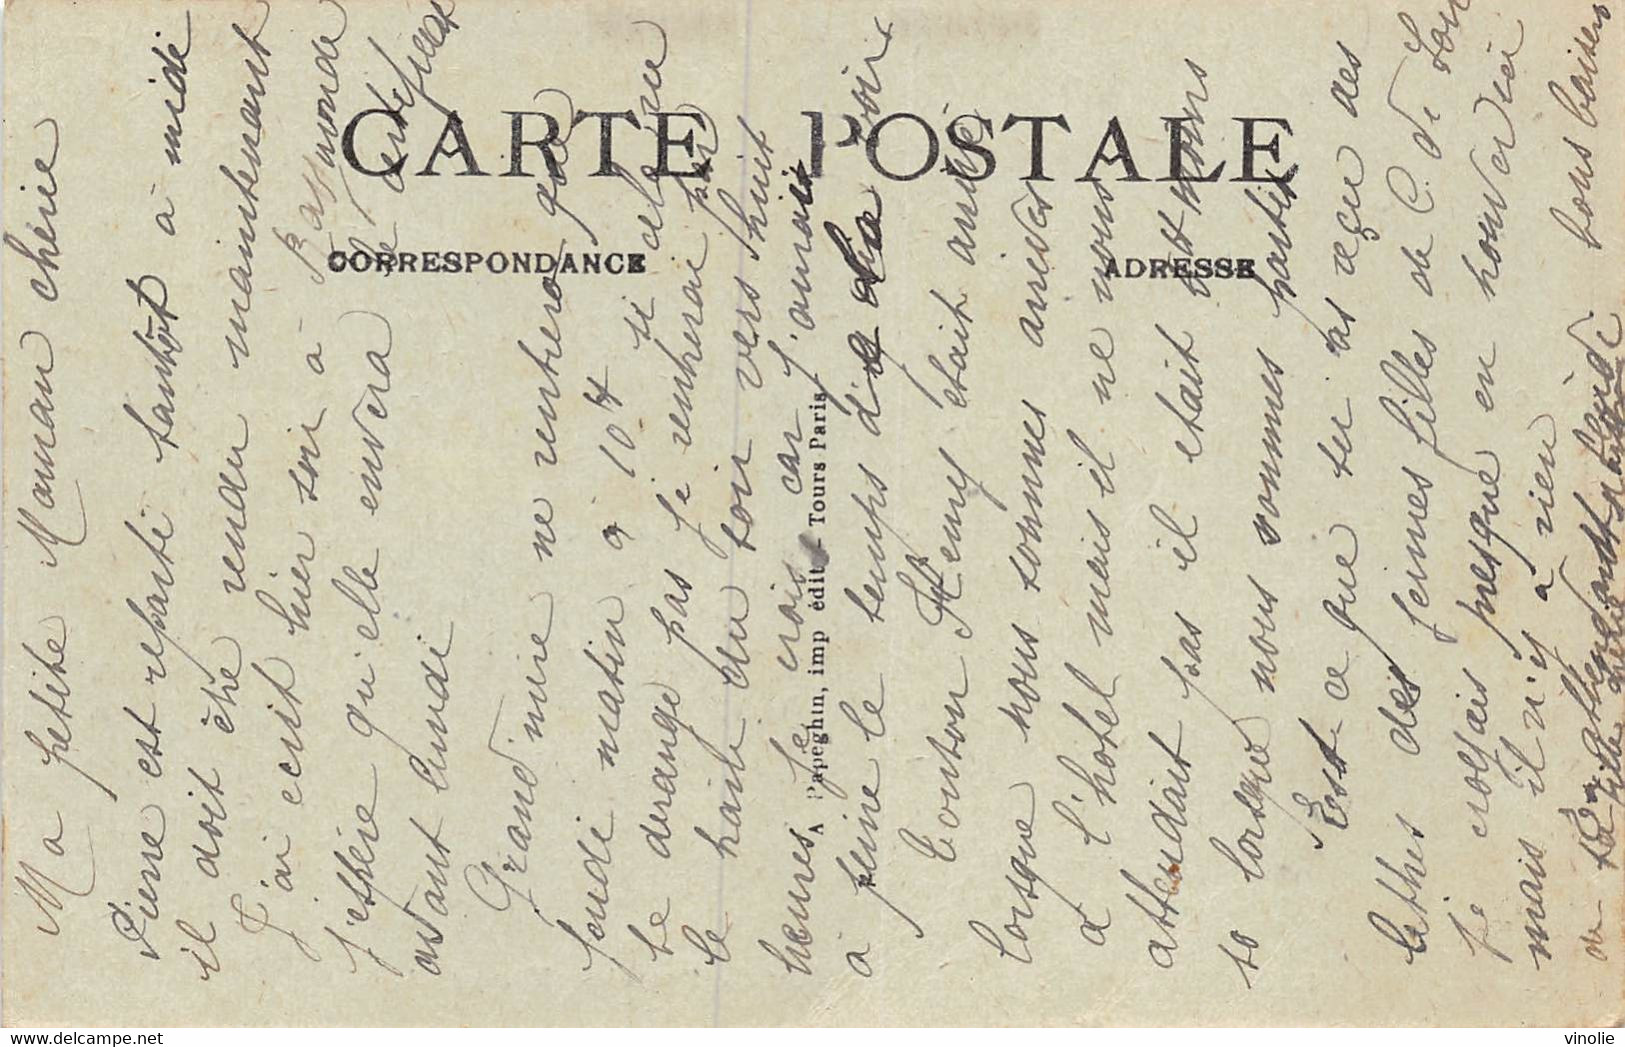 CARTE POSTALE
CORRESPONDANCE
ADRESSE
A Papeghin, imp édit - Tours Paris
Ma petite Maman chérie
Pierre est reparti tantôt à midi
il doit être rendu maintenant
J'ai écrit hier soir à
j'espère qu'elle enverra le certificat
avant lundi
Grand'mère ne rentrera que
jeudi matin à 10 h si cela ne
te dérange pas je rentrerai par
le train du soir vers huit
heures je crois car j'aurais
à peine le temps de la voir
Tonton Rémy était arrivé
lorsque nous sommes arrivés
à l'hôtel mais il ne nous
attendait pas il était moins
lorsque nous sommes partis
Est-ce que tu as reçu des
lettres des jeunes filles de C. de
je croyais presque en trouver ici
mais il n'y a rien bons baisers
de ta fille chérie
En attendant jeudi
vinolie